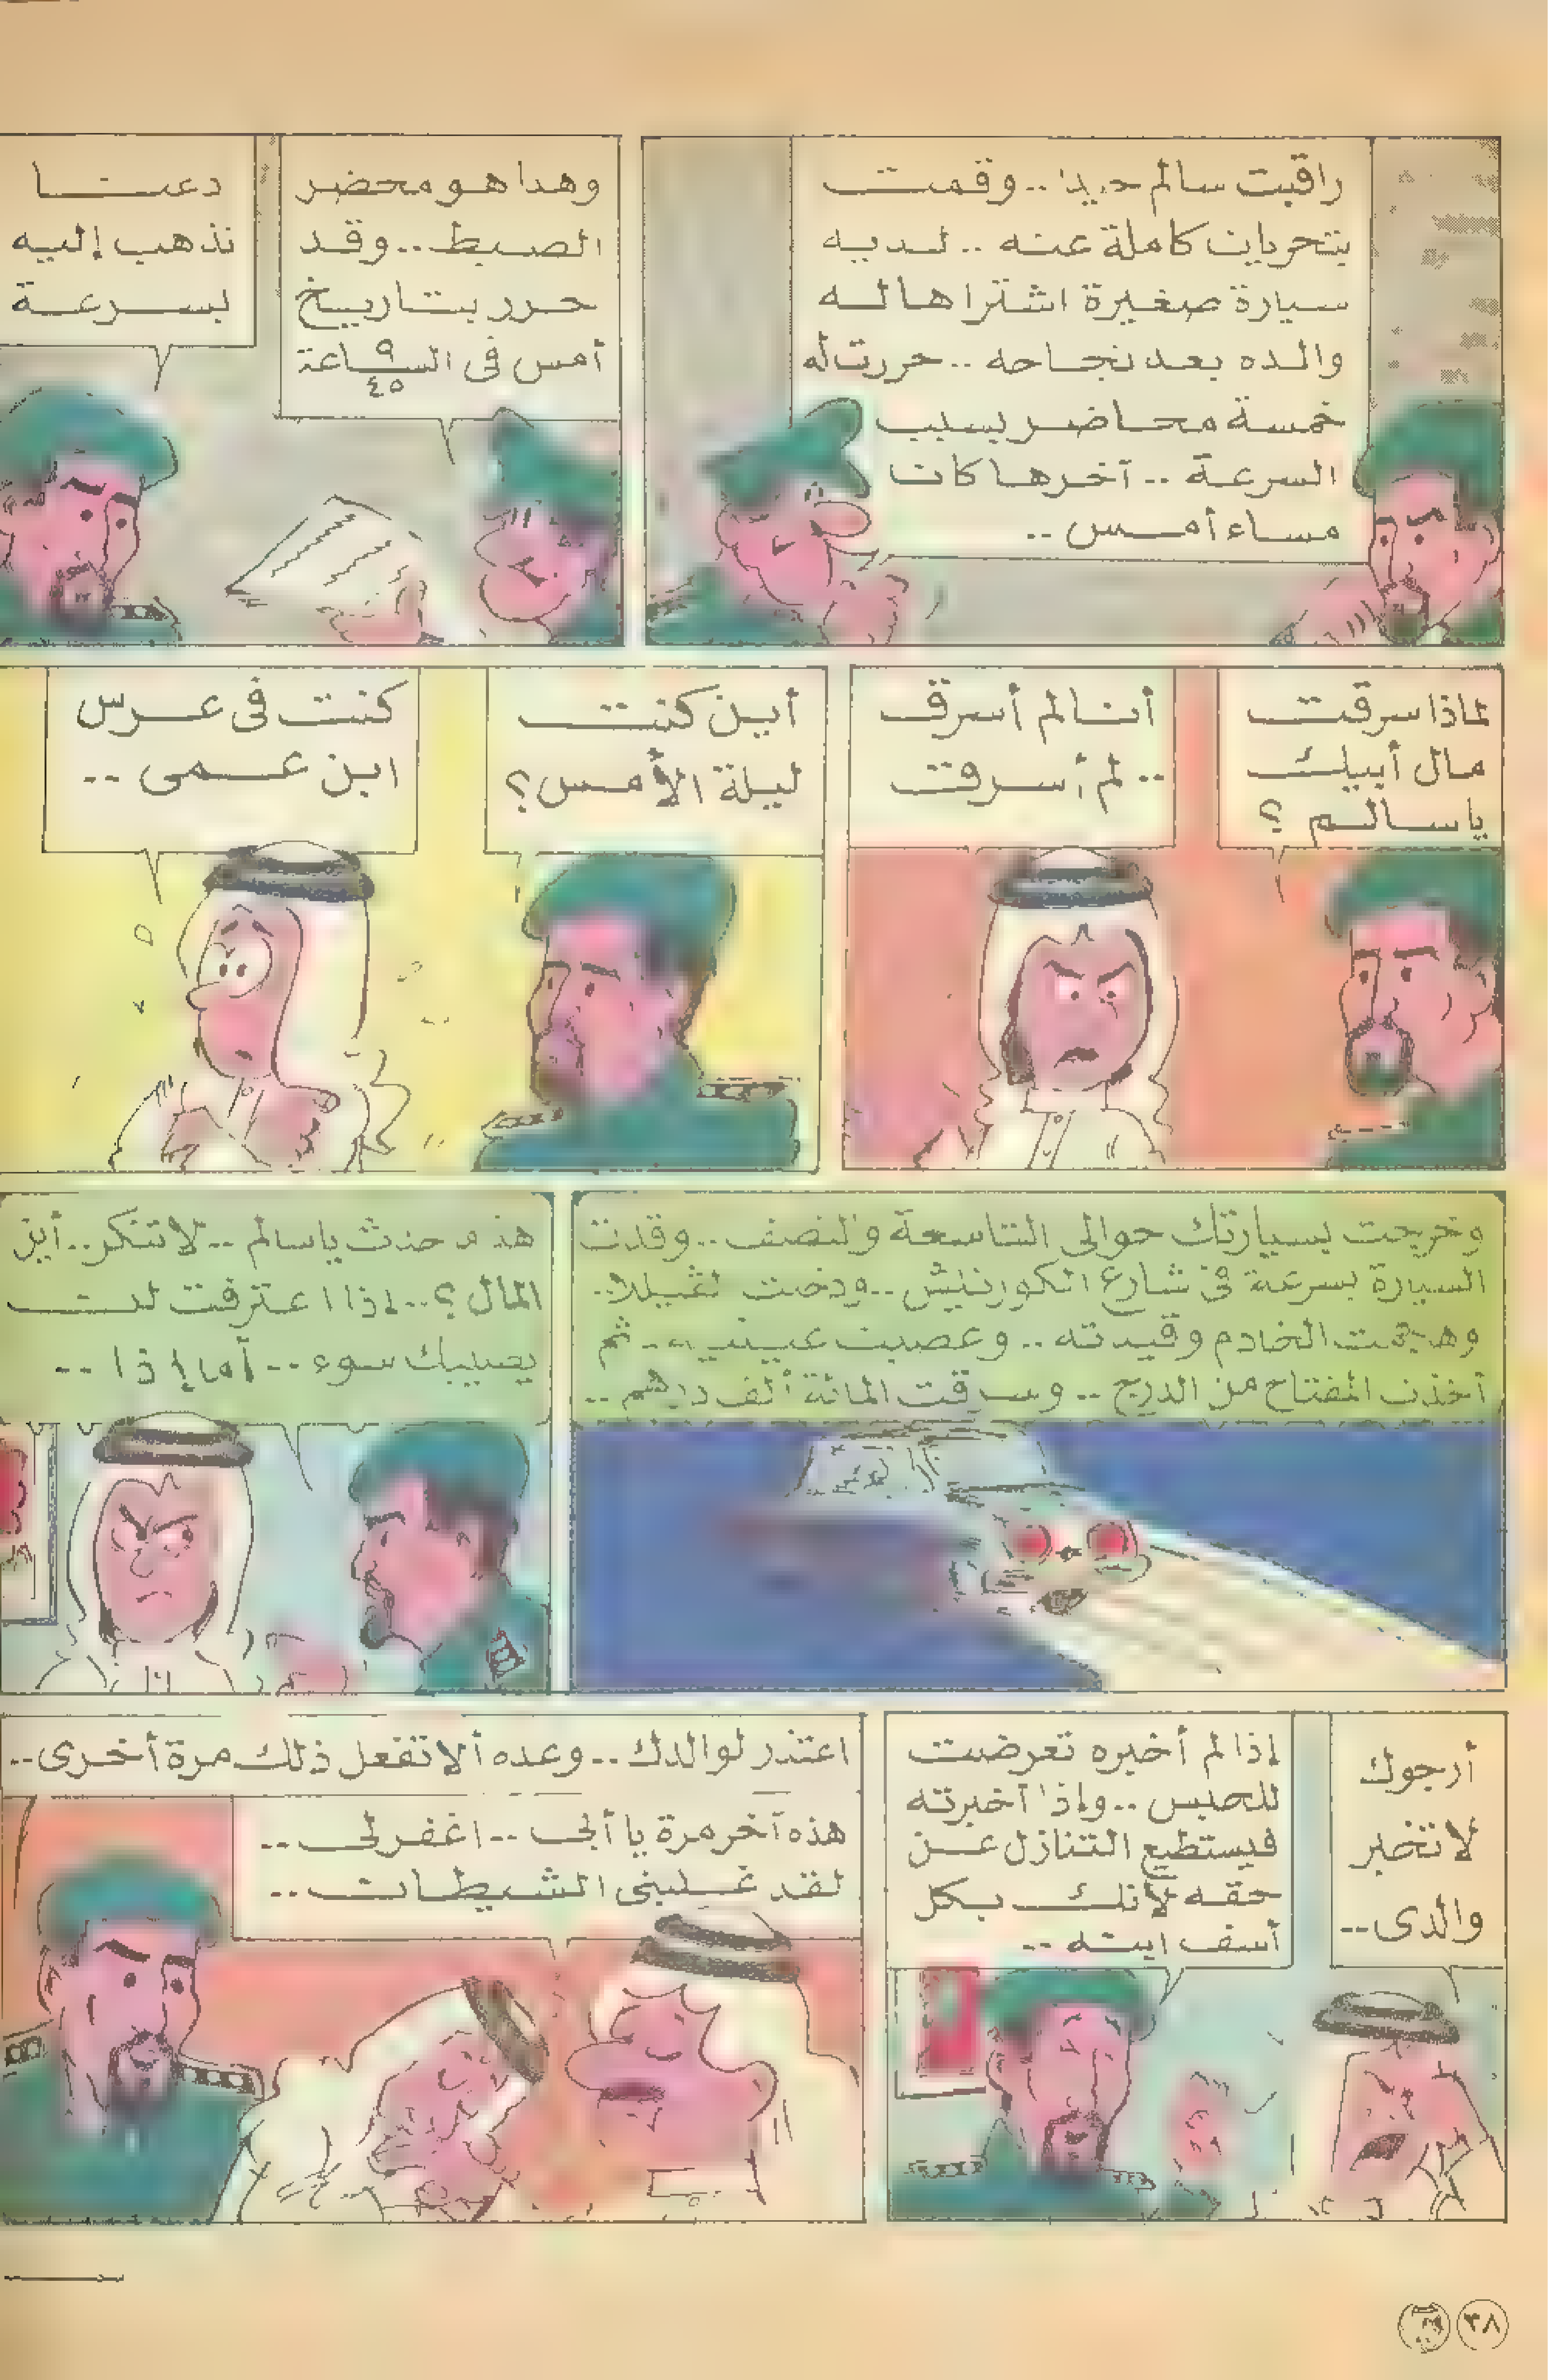 راقبت سالم جيدا .. وقمت
بتحريات كاملة عنه .. لديه
سيارة صغيرة اشتراها له
والده بعد نجاحه .. حررت له
خمسة محاضر بسبب
السرعة .. آخرها كان
مساء أمس ..
وهذا هو محضر
الضبط .. وقد
حرر بتاريخ
أمس فى الساعة
٩
٤٥
دعنا
نذهب إليه
بسرعة
لماذا سرقت
مال أبيك
يا سالم ؟
أنا لم أسرق
.. لم أسرق
أين كنت
ليلة الأمس ؟
كنت فى عرس
ابن عمى ..
وخرجت بسيارتك حوالى التاسعة والنصف .. وقدت
السيارة بسرعة فى شارع الكورنيش .. ودخلت الفيللا ..
وهاجمت الخادم وقيدته .. وعصبت عينيه .. ثم
أخذت المفتاح من الدرج .. وسرقت المائة ألف درهم ..
هذا ما حدث يا سالم .. لا تنكر .. أين
المال ؟ .. إذا اعترفت لن
يصيبك سوء .. أما إذا ..
أرجوك
لا تخبر
والدى ..
إذا لم أخبره تعرضت
للحبس .. وإذا أخبرته
فيستطيع التنازل عن
حقه لأنك بكل
أسف ابنه ..
اعتذر لوالدك .. وعده ألا تفعل ذلك مرة أخرى ..
هذه آخر مرة يا أبى .. اغفر لى ..
لقد غلبنى الشيطان ..
٣٨